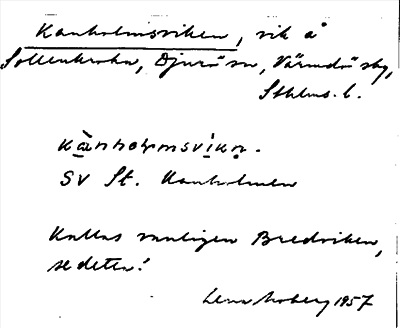 Kanholmsviken, vik å
Sollenkroka, Djurö sn, Värmdö sbg,
Sthlms l.
kànholmsvikn.
SV St. Kanholmen
Kallas vanligen Bredviken,
se detta!
Lena Moberg 1957